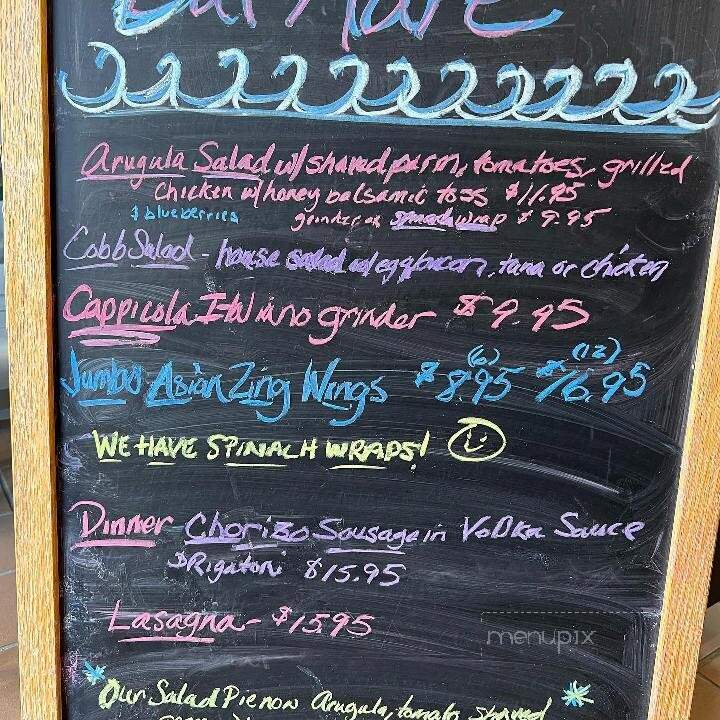 Arugula Salad w/ shaved parm, tomatoes, grilled
Chicken w/ honey balsamic toss $11.95
$ blueberries grinder or spinach wrap $9.95
Cobb Salad - house salad w/ egg, bacon, tuna or chicken
Cappicola Italiano grinder $9.95
Jumbo Asian Zing Wings $8.95 (6) $16.95 (12)
WE HAVE SPINACH WRAPS!
Dinner Chorizo Sausage in Vodka Sauce
$ Rigatoni $15.95
Lasagna - $15.95
menupix
Our Salad Pie now Arugula, tomato, shaved